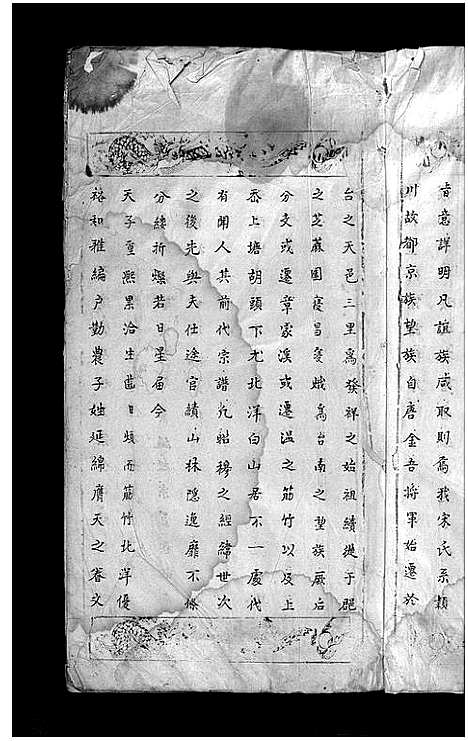 旨意詳明凡誼族咸取則焉我宋氏系類
川故都京族望族自唐金吾將軍始遷於
台之天邑三里為發祥之始祖續遷于邑
之芝蔴園寖昌寖熾為台南之望族厥后
分支或遷章家溪或遷溫之筋竹以及上
岙上塘胡頭下尤北洋白山居不一處代
有聞人其前代宗譜凡昭穆之經緯世次
之後先與夫仕途官績山林隱逸靡不條
分縷析燦若日星届今
天子重熙累洽生齒日煩而筋竹北洋優
裕和雅編户勤農子姓延綿膺天之眷文